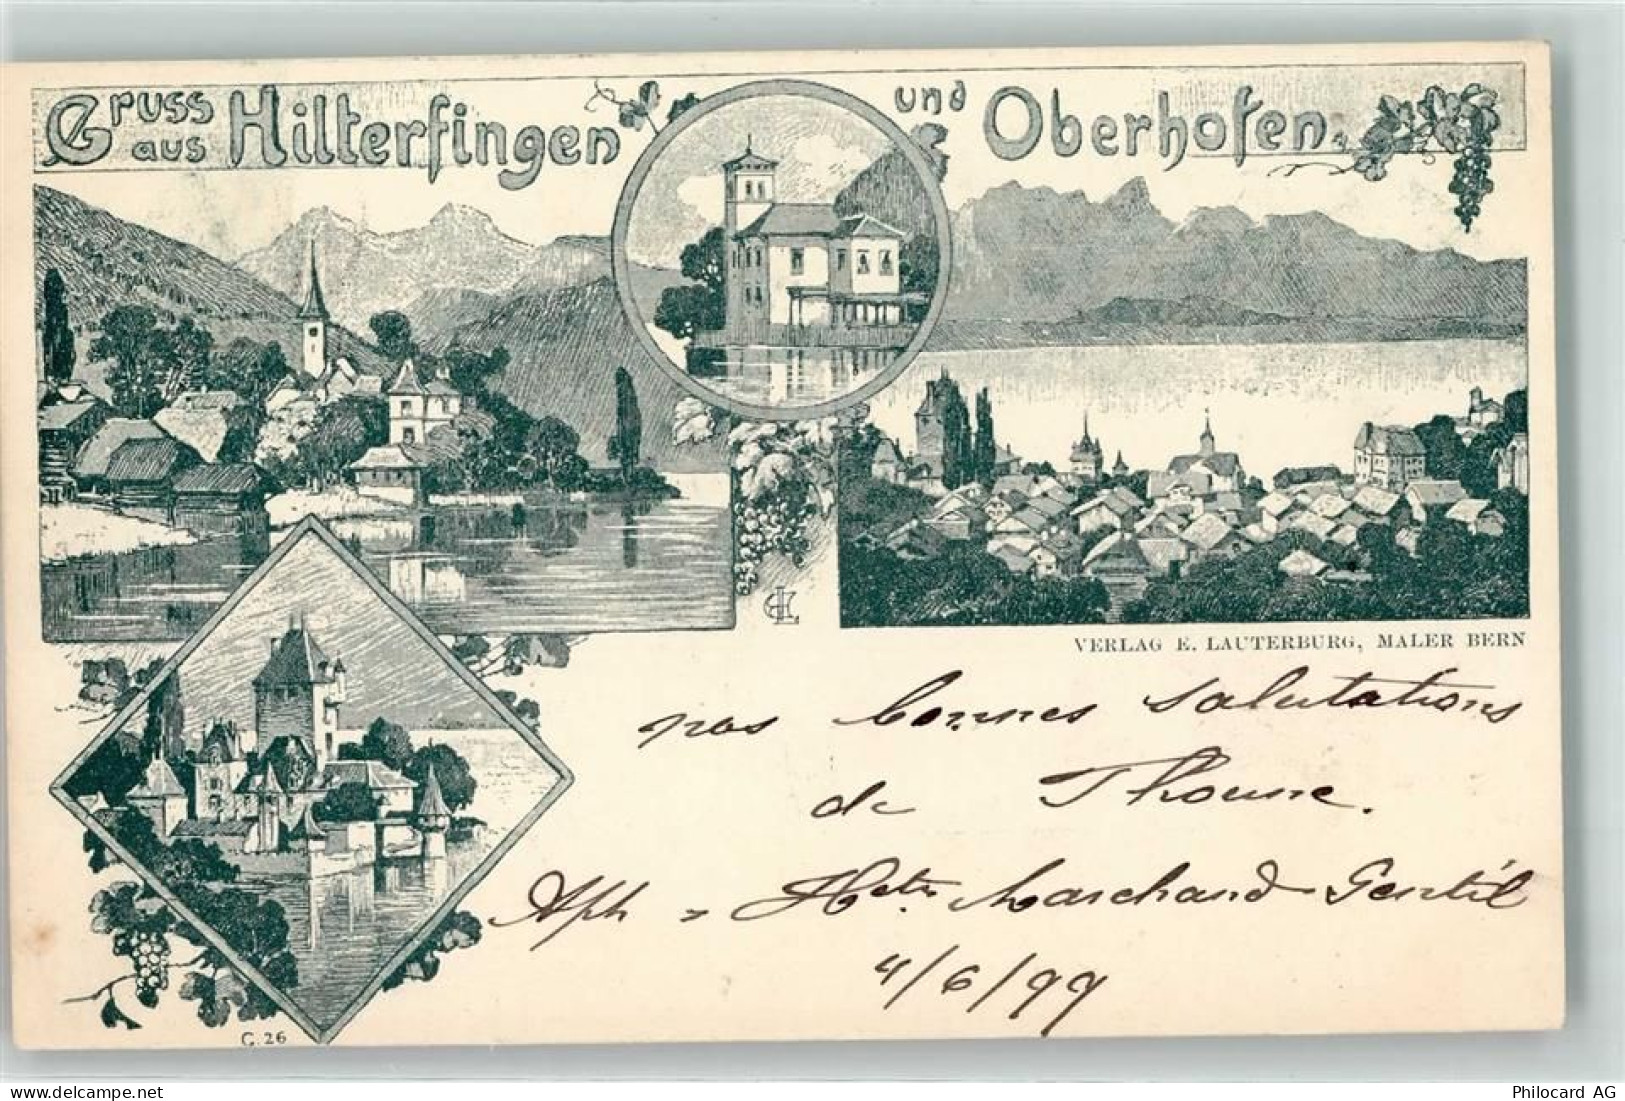 Gruss aus Hilterfingen und Oberhofen
VERLAG E. LAUTERBURG, MALER BERN
nos bonnes salutations
de Thoune.
Alph
Marchand-Gentil
4/6/99
C. 26
www.delcampe.net
Philocard AG